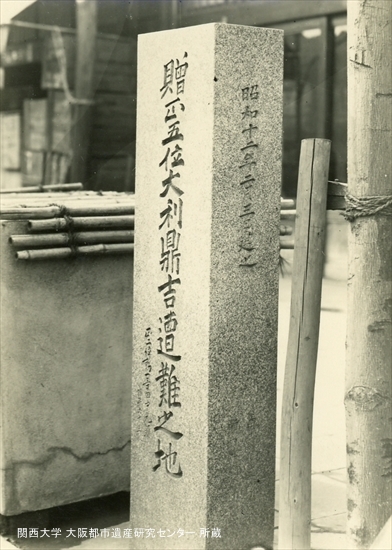 贈正五位大利鼎吉遭難之地
昭和十二年
関西大学 大阪都市遺産研究センター 所蔵